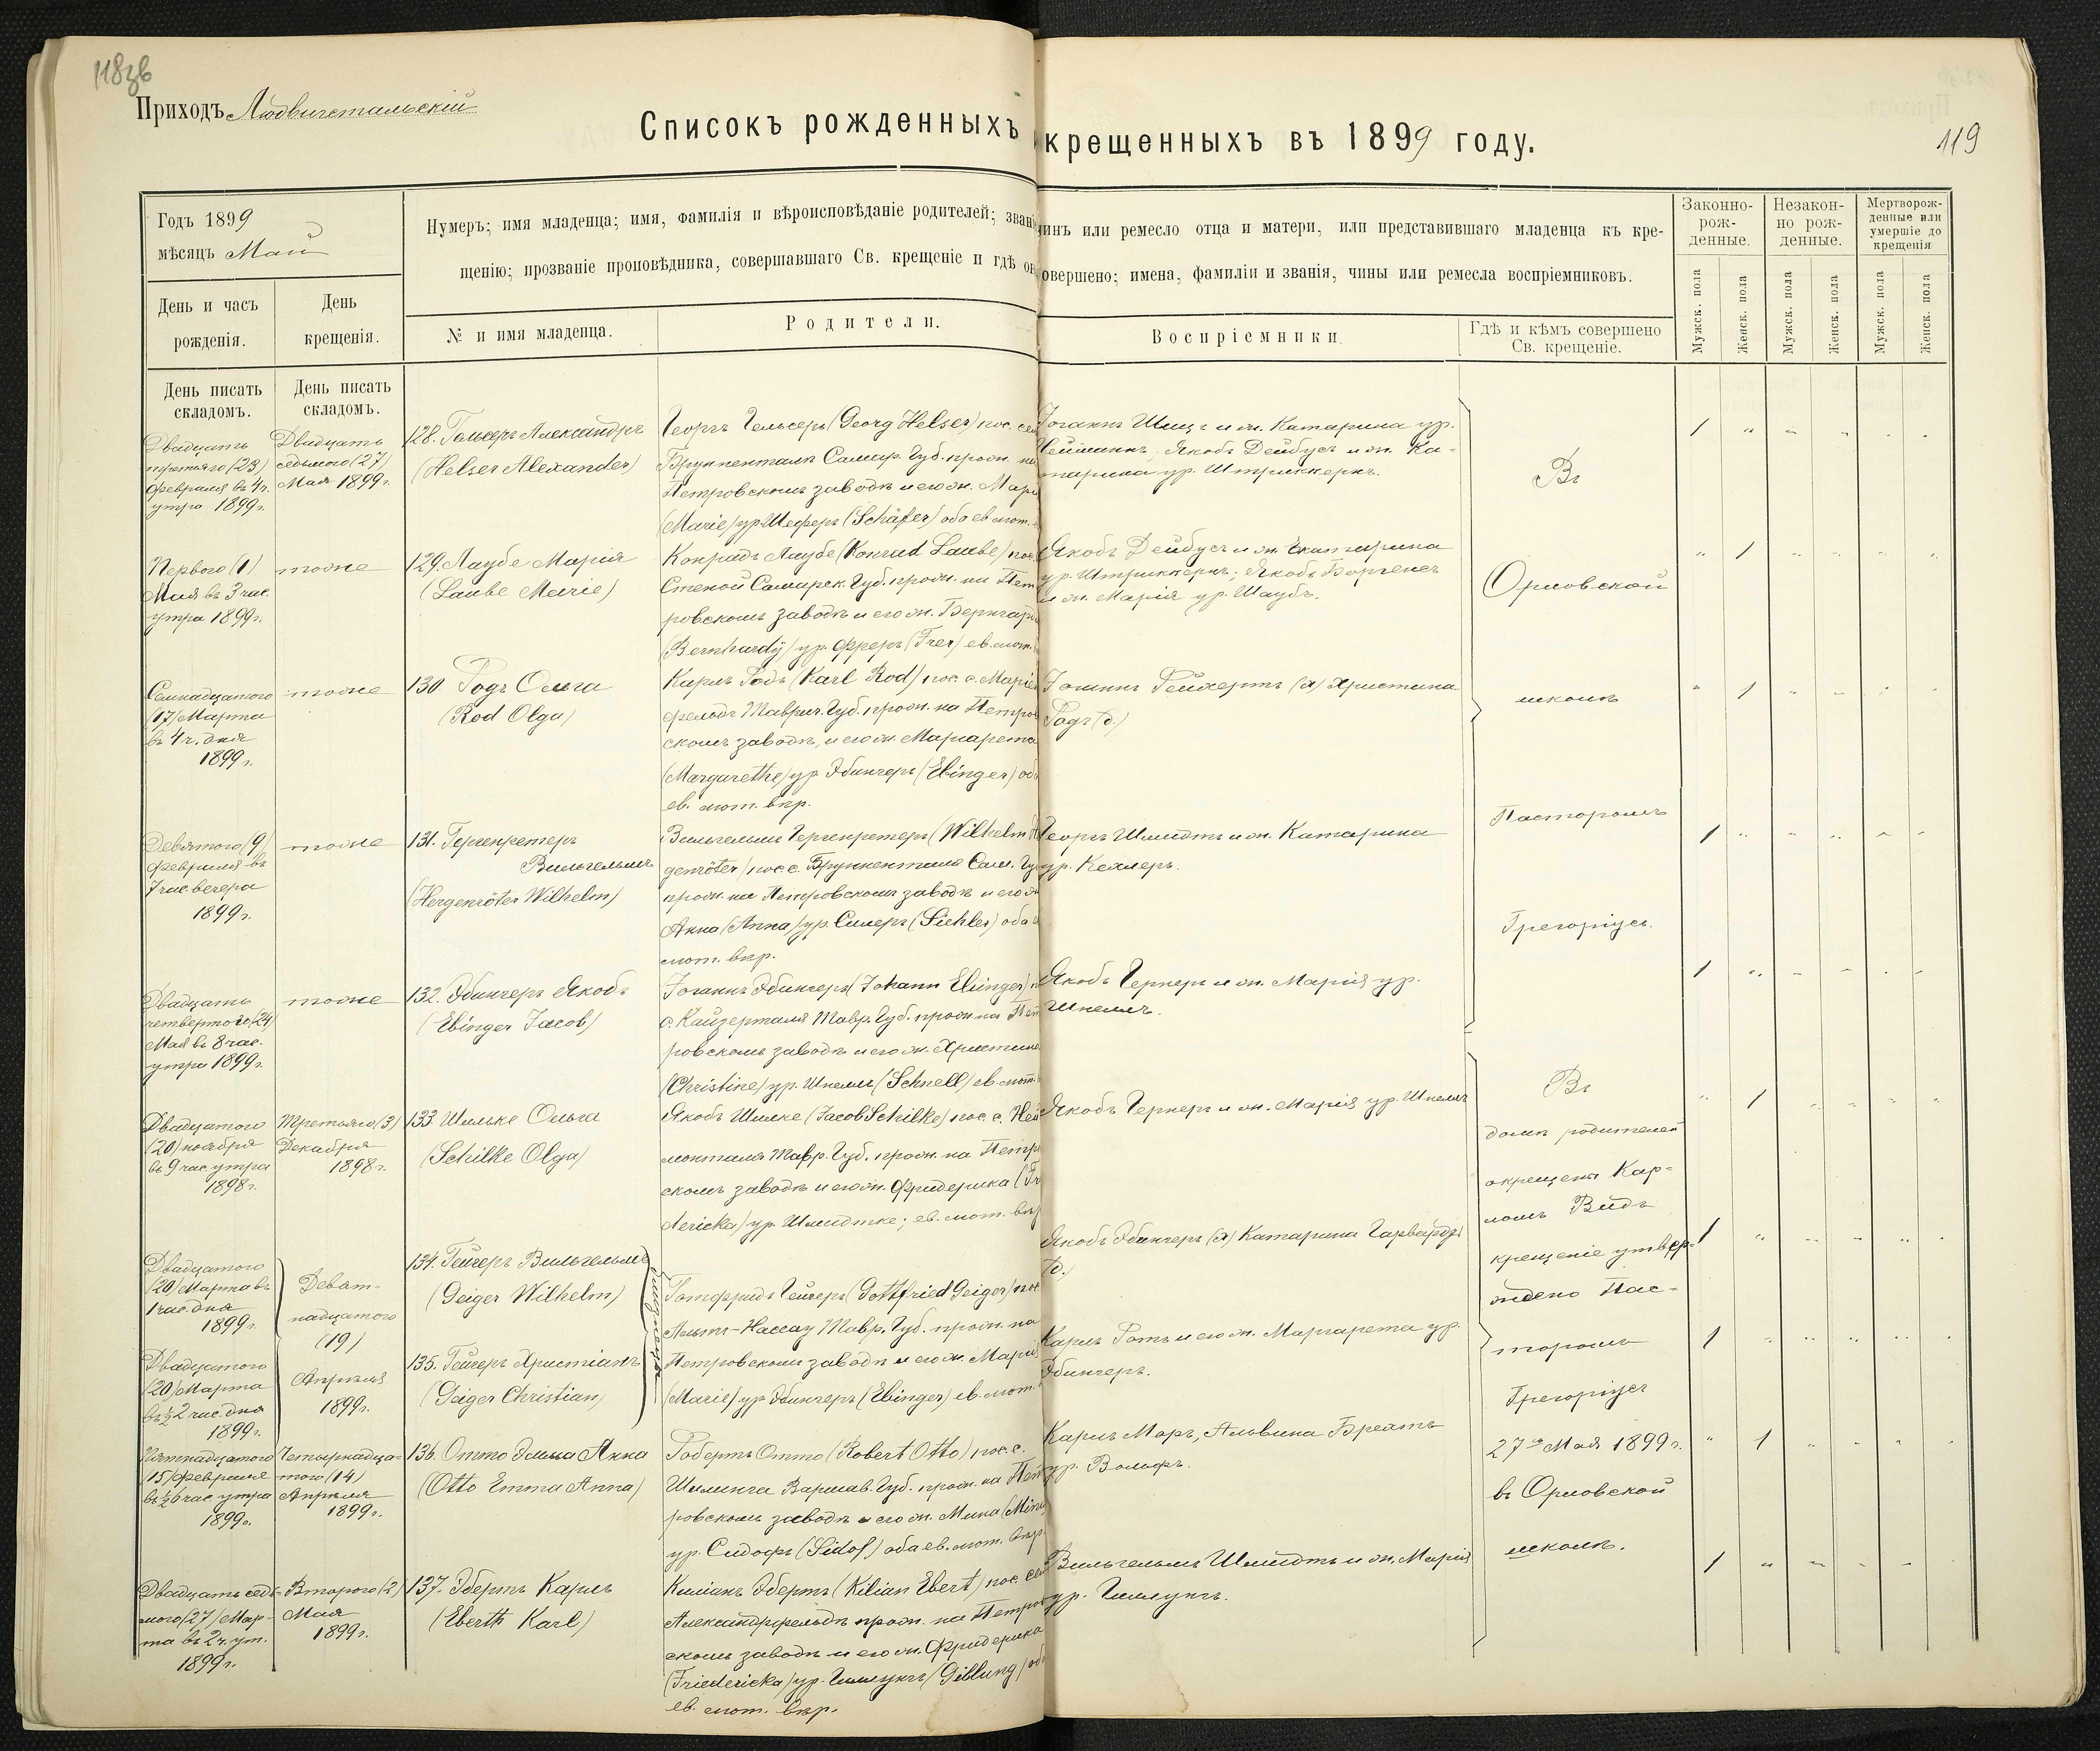 118зв
Приходъ Людвигстальскій
Списокъ рожденныхъ
крещенныхъ въ 1899 году.
119
Годъ 1899
мѣсяцъ Май
Нумеръ; имя младенца; имя, фамилія и вѣроисповѣданіе родителей;
щенію; прозваніе проповѣдника, совершавшаго Св. крещеніе и гдѣ
чинъ или ремесло отца и матери, или представившаго младенца къ кре-
совершено; имена, фамиліи и званія, чины или ремесла воспріемниковъ.
Законно-
рож-
денные.
Незакон-
но рож-
денные.
Мертворож-
денные или
умершіе до
крещенія
День и часъ
рожденія.
День
крещенія.
№ и имя младенца.
Родители.
Воспріемники
Гдѣ и кѣмъ совершено
Св. крещеніе.
Мужск. пола
Женск. пола
Мужск. пола
Женск. пола
Мужск. пола
Женск. пола
День писать
складомъ.
День писать
складомъ.
Двадцать
третьяго (23)
февраля въ 4 ч.
утра 1899 г.
Двадцать
седьмого (27)
Мая 1899 г.
128. Гельсеръ Александръ
(Helser Alexander)
Георгъ Гельсеръ (Georg Helser) пос.
Брунненталя Самар. Губ. прож. на
Петровскомъ заводѣ и его ж. Марія
(Marie) ур. Шеферъ (Schäfer) оба ев. лют.
Іоганнъ Шицъ и ж. Катарина ур.
Нейманнъ, Якобъ Дейбусъ и ж. Ка-
тарина ур. Штриккеръ.
Въ
1
Первого (1)
Мая въ 3 час.
утра 1899 г.
тоже
129. Лаубе Марія
(Laube Marie)
Конрадъ Лаубе (Konrad Laube) пос.
Степной Самарск. Губ. прож. на Пет
ровскомъ заводѣ и его ж. Бернгарди
(Bernhardÿ) ур. Фреръ (Frer) ев. лют.
Якобъ Дейбусъ и ж. Екатарина
ур. Штриккеръ; Якобъ Боргенсъ
и ж. Марія ур. Шаубъ.
Орловской
1
Семнадцатого
(17) Марта
въ 4 ч. дня
1899 г.
тоже
130. Родъ Ольга
(Rod Olga)
Карлъ Родъ (Karl Rod) пос. с. Маріен
фельдъ Таврич. Губ. прож. на Петров
скомъ заводѣ, и его ж. Маргарета
(Margarethe) ур. Эбингеръ (Ebinger) об
ев. лют. вѣр.
Іоганнъ Рейхертъ (х) Христина
Родъ (д.)
школѣ
1
Девятого (9)
февраля въ
7 час. вечера
1899 г.
тоже
131. Гергенретеръ
Вильгельмъ
(Hergenröter Wilhelm)
Вильгельмъ Гергенретеръ (Wilhelm
genröter) пос. с. Брунненталя Сам. Гу
прож. на Петровскомъ заводѣ и его ж
Анна (Anna) ур. Силеръ (Siehler) оба е
лют. вѣр.
Георгъ Шмидтъ и ж. Катарина
ур. Кехлеръ.
Пасторомъ
Грегоріусъ.
1
Двадцать
четвертого (24)
Мая въ 8 час.
утра 1899 г.
тоже
132. Эбингеръ Якобъ
(Ebinger Jacob)
Іоганнъ Эбингеръ (Johann Ebinger)
с. Кайзерталя Тавр. Губ. прож. на Пет
ровскомъ заводѣ и его ж. Христине
(Christine) ур. Шнелль (Schnell) ев. лют.
Якобъ Гернеръ и ж. Марія ур.
Шнелль.
1
Двадцатого
(20) ноября
въ 9 час. утра
1898 г.
Третьяго (3)
Декабря
1898 г.
133. Шильке Ольга
(Schilke Olga)
Якобъ Шилке (Jacob Schilke) пос. с. Ней
монталя Тавр. Губ. прож. на Петро
скомъ заводѣ и его ж. Фридерика (Fr
dericka) ур. Шмидтке; ев. лют. вѣр
Якобъ Гернеръ и ж. Марія ур. Шнелль
Въ
домѣ родителей
окрещены Кар-
ломъ Видъ
крещеніе утвер-
ждено Пас-
торомъ
Грегоріусъ
27го Мая 1899 г.
въ Орловской
школѣ.
1
Двадцатого
(20) Марта въ
1 час. дня
1899 г.
Девят-
надцатого
(19)
Апрѣля
1899 г.
134. Гейгеръ Вильгельмъ
(Geiger Wilhelm)
близнецы
Готфридъ Гейгеръ (Gottfried Geiger) пос.
Альтъ-Нассау Тавр. Губ. прож. на
Петровскомъ заводѣ и его ж. Марія
(Marie) ур. Эбингеръ (Ebinger) ев. лют.
Якобъ Эбингеръ (х) Катарина Гарвардтъ
(д.)
1
Двадцатого
(20) Марта
въ ½ 2 час. дня
1899 г.
135. Гейгеръ Христіанъ
(Geiger Christian)
Карлъ Готъ и его ж. Маргарета ур.
Эбингеръ.
1
Пятнадцатого
(15) февраля
въ ½ 6 час. утра
1899 г.
Четырнадца-
того (14)
Апрѣля
1899 г.
136. Отто Эмма Анна
(Otto Emma Anna)
Робертъ Отто (Robert Otto) пос. с.
Варшав. Губ. прож. на Пет
ровскомъ заводѣ и его ж. Мина (Mina
ур. Сидофъ (Sidof) оба ев. лют. вѣр.
Карлъ Маръ, Альвина Брехтъ
ур. Вольфъ.
1
Двадцать седь-
мого (27) Мар-
та въ 2 ч. ут.
1899 г.
Второго (2)
Мая
1899 г.
137. Эбертъ Карлъ
(Eberth Karl)
Киліанъ Эбертъ (Kilian Ebert) пос.
Александрфельдъ прож. на Петров
скомъ заводѣ и его ж. Фридерика
(Friedericka) ур. (Giblung) об
ев. лют. вѣр.
Вильгельмъ Шмидтъ и ж. Марія
ур.
1